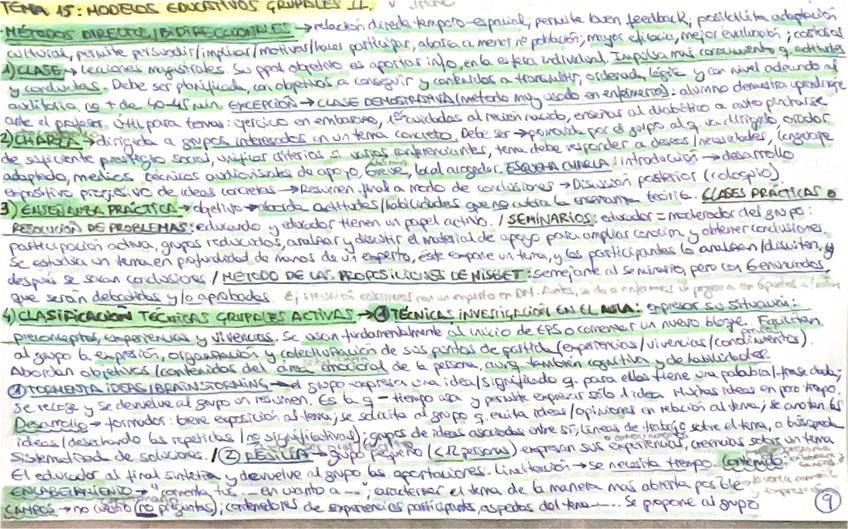 TEMA 15: MODELOS EDUCATIVOS GRUPALES II.
MÉTODOS DIRECTOS/BIDIRECCIONALES → relación directa temporo-espacial, permite buen feedback; posibilita adaptación
cultural, permite persuadir/implicar/motivar/hacer participar, abarca a menor nº población; mayor eficacia, mejor evaluación; costosas
1) CLASE → lecciones magistrales. Su ppal objetivo es aportar info, en la esfera individual. Impulsa más conocimiento q. actitudes
y conductas. Debe ser planificada, con objetivos a conseguir y contenidos a transmitir, ordenada, lógica y con nivel adecuado al
auditorio, no + de 40-45 min. EXCEPCIÓN → CLASE DEMOSTRATIVA (método muy usado en enfermería): alumno demuestra aprendizaje
ante el profesor. Útil para temas: ejercicio en embarazo, cuidados al recién nacido, enseñar al diabético a auto pincharse
2) CHARLA → dirigida a grupos interesados en un tema concreto. Debe ser → por el grupo al q. va dirigido, orador
de suficiente prestigio social, unificar criterios si varios conferenciantes, tema debe responder a deseos/necesidades, lenguaje
adaptado, medios técnicos audiovisuales de apoyo, breve, local acogedor. ESQUEMA CHARLA: introducción → desarrollo
expositivo progresivo de ideas concretas → Resumen final a modo de conclusiones → Discusión posterior (coloquio)
3) ENSEÑANZA PRÁCTICA → objetivo → actitudes/habilidades que no cubre la enseñanza teórica. CLASES PRÁCTICAS O
RESOLUCIÓN DE PROBLEMAS: educando y educador tienen un papel activo. / SEMINARIOS: educador = moderador del grupo:
participación activa, grupos reducidos, analizar y discutir el material de apoyo para ampliar conocim. y obtener conclusiones.
Se estudia un tema en profundidad de manos de un experto, éste expone un tema, y los participantes lo analizan/discuten, y
después se sacan conclusiones / MÉTODO DE LAS PROPOSICIONES DE NISBET: semejante al seminario, pero con 6 enunciados
que serán debatidos y/o aprobados. Ej: con un experto en DM. Antes, se da a
4) CLASIFICACIÓN TÉCNICAS GRUPALES ACTIVAS → TÉCNICAS INVESTIGACIÓN EN EL AULA: expresar su situación:
preconceptos, experiencias y vivencias. Se usan fundamentalmente al inicio de EPS o comenzar un nuevo bloque. Facilitan
al grupo la expresión, organización y colectivización de sus puntos de partida (experiencias/vivencias/conocimientos).
Abordan objetivos/contenidos del área emocional de la persona, aunq. también cognitiva y de habilidades.
① TORMENTA IDEAS/BRAINSTORMING → el grupo expresa una idea/significado q. para ellos tiene una palabra/frase dada;
se recoge y se devuelve al grupo un resumen. Es la q. - tiempo usa y permite expresar sólo 1 idea. Muchas ideas en poco tiempo.
Desarrollo → formador: breve exposición al tema; se solicita al grupo q. emita ideas/opiniones en relación al tema; se anotan las
ideas/desechando las repetidas/no significativas); grupos de ideas asociadas entre sí; líneas de trabajo sobre el tema, o búsqueda
sistematizada de soluciones. / ② REJILLA → grupo pequeño (<12 personas) expresan sus experiencias, creencias sobre un tema
El educador al final sintetiza y devuelve al grupo las aportaciones. Limitación → se necesita tiempo. Contenido
ENCABEZAMIENTO → "comenta tus ... en cuanto a ..."; caracterizar el tema de la manera más abierta posible
CAMPOS → no cuestio (no preguntas); contenedores de experiencias participants, aspectos del tema ...... Se propone al grupo
9